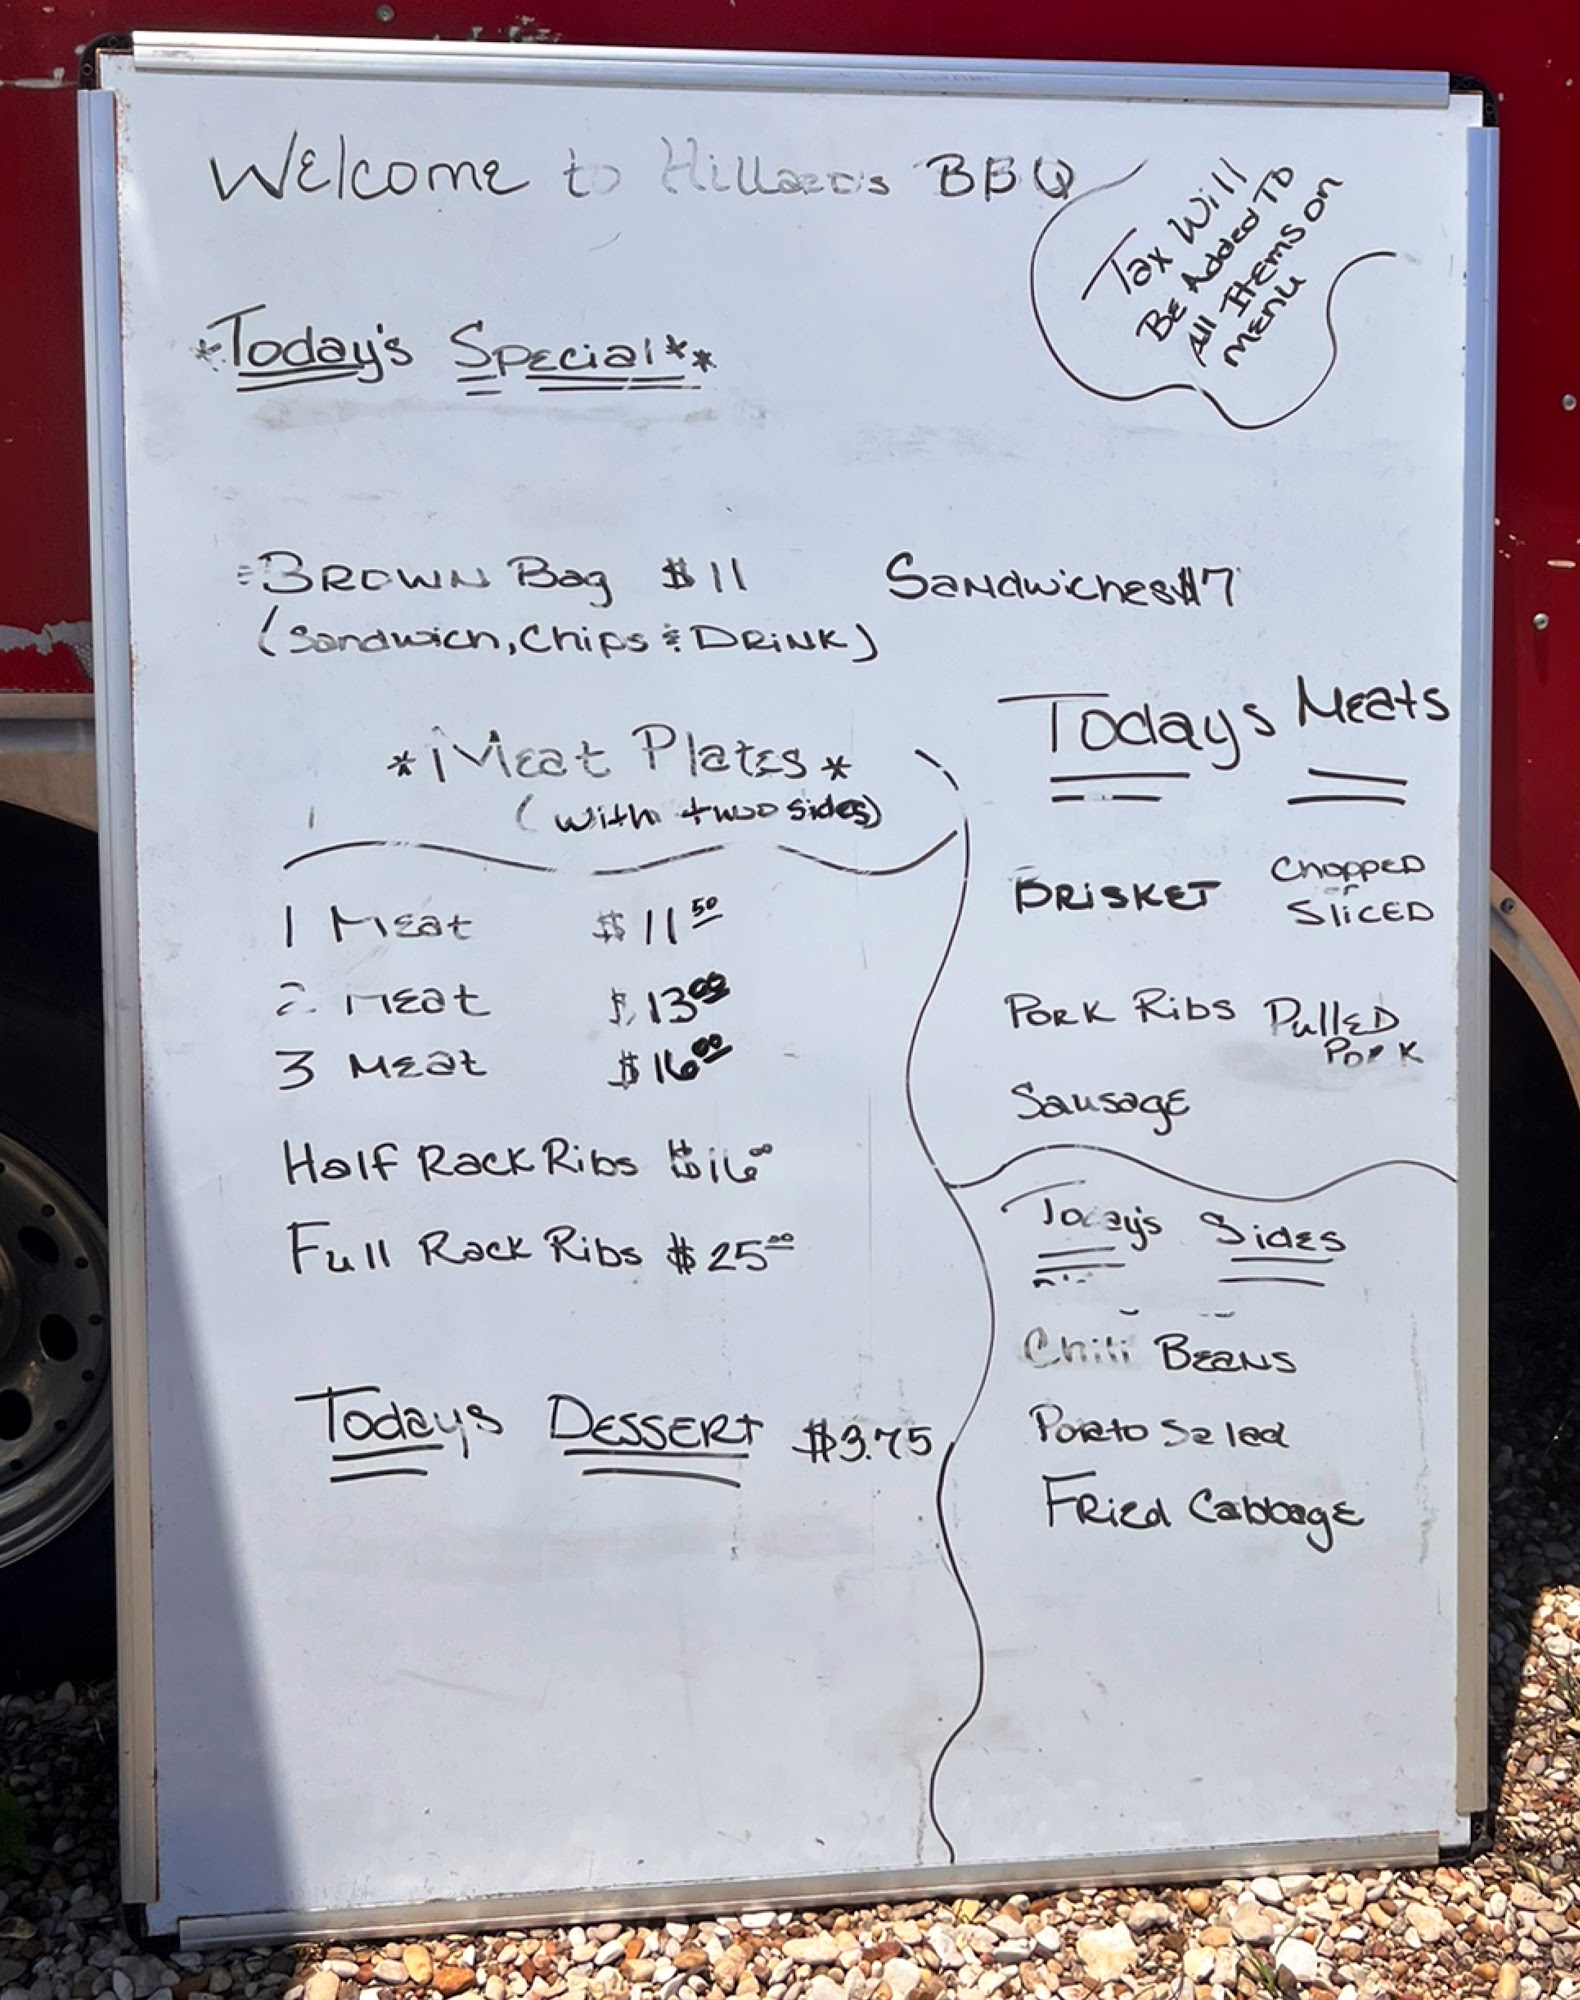 Welcome to Hillard's BBQ
Tax Will
Be Added To
All Items on
menu
*Today's Special**
Brown Bag $11
(Sandwich, Chips & Drink)
Sandwiches $7
*Meat Plates*
(with two sides)
1 Meat $11 50
2 Meat $13 00
3 Meat $16 00
Half Rack Ribs $16 00
Full Rack Ribs $25 00
Todays Dessert $3.75
Todays Meats
Brisket Chopped
or
Sliced
Pork Ribs Pulled
Pork
Sausage
Today's Sides
Chili Beans
Potato Salad
Fried Cabbage